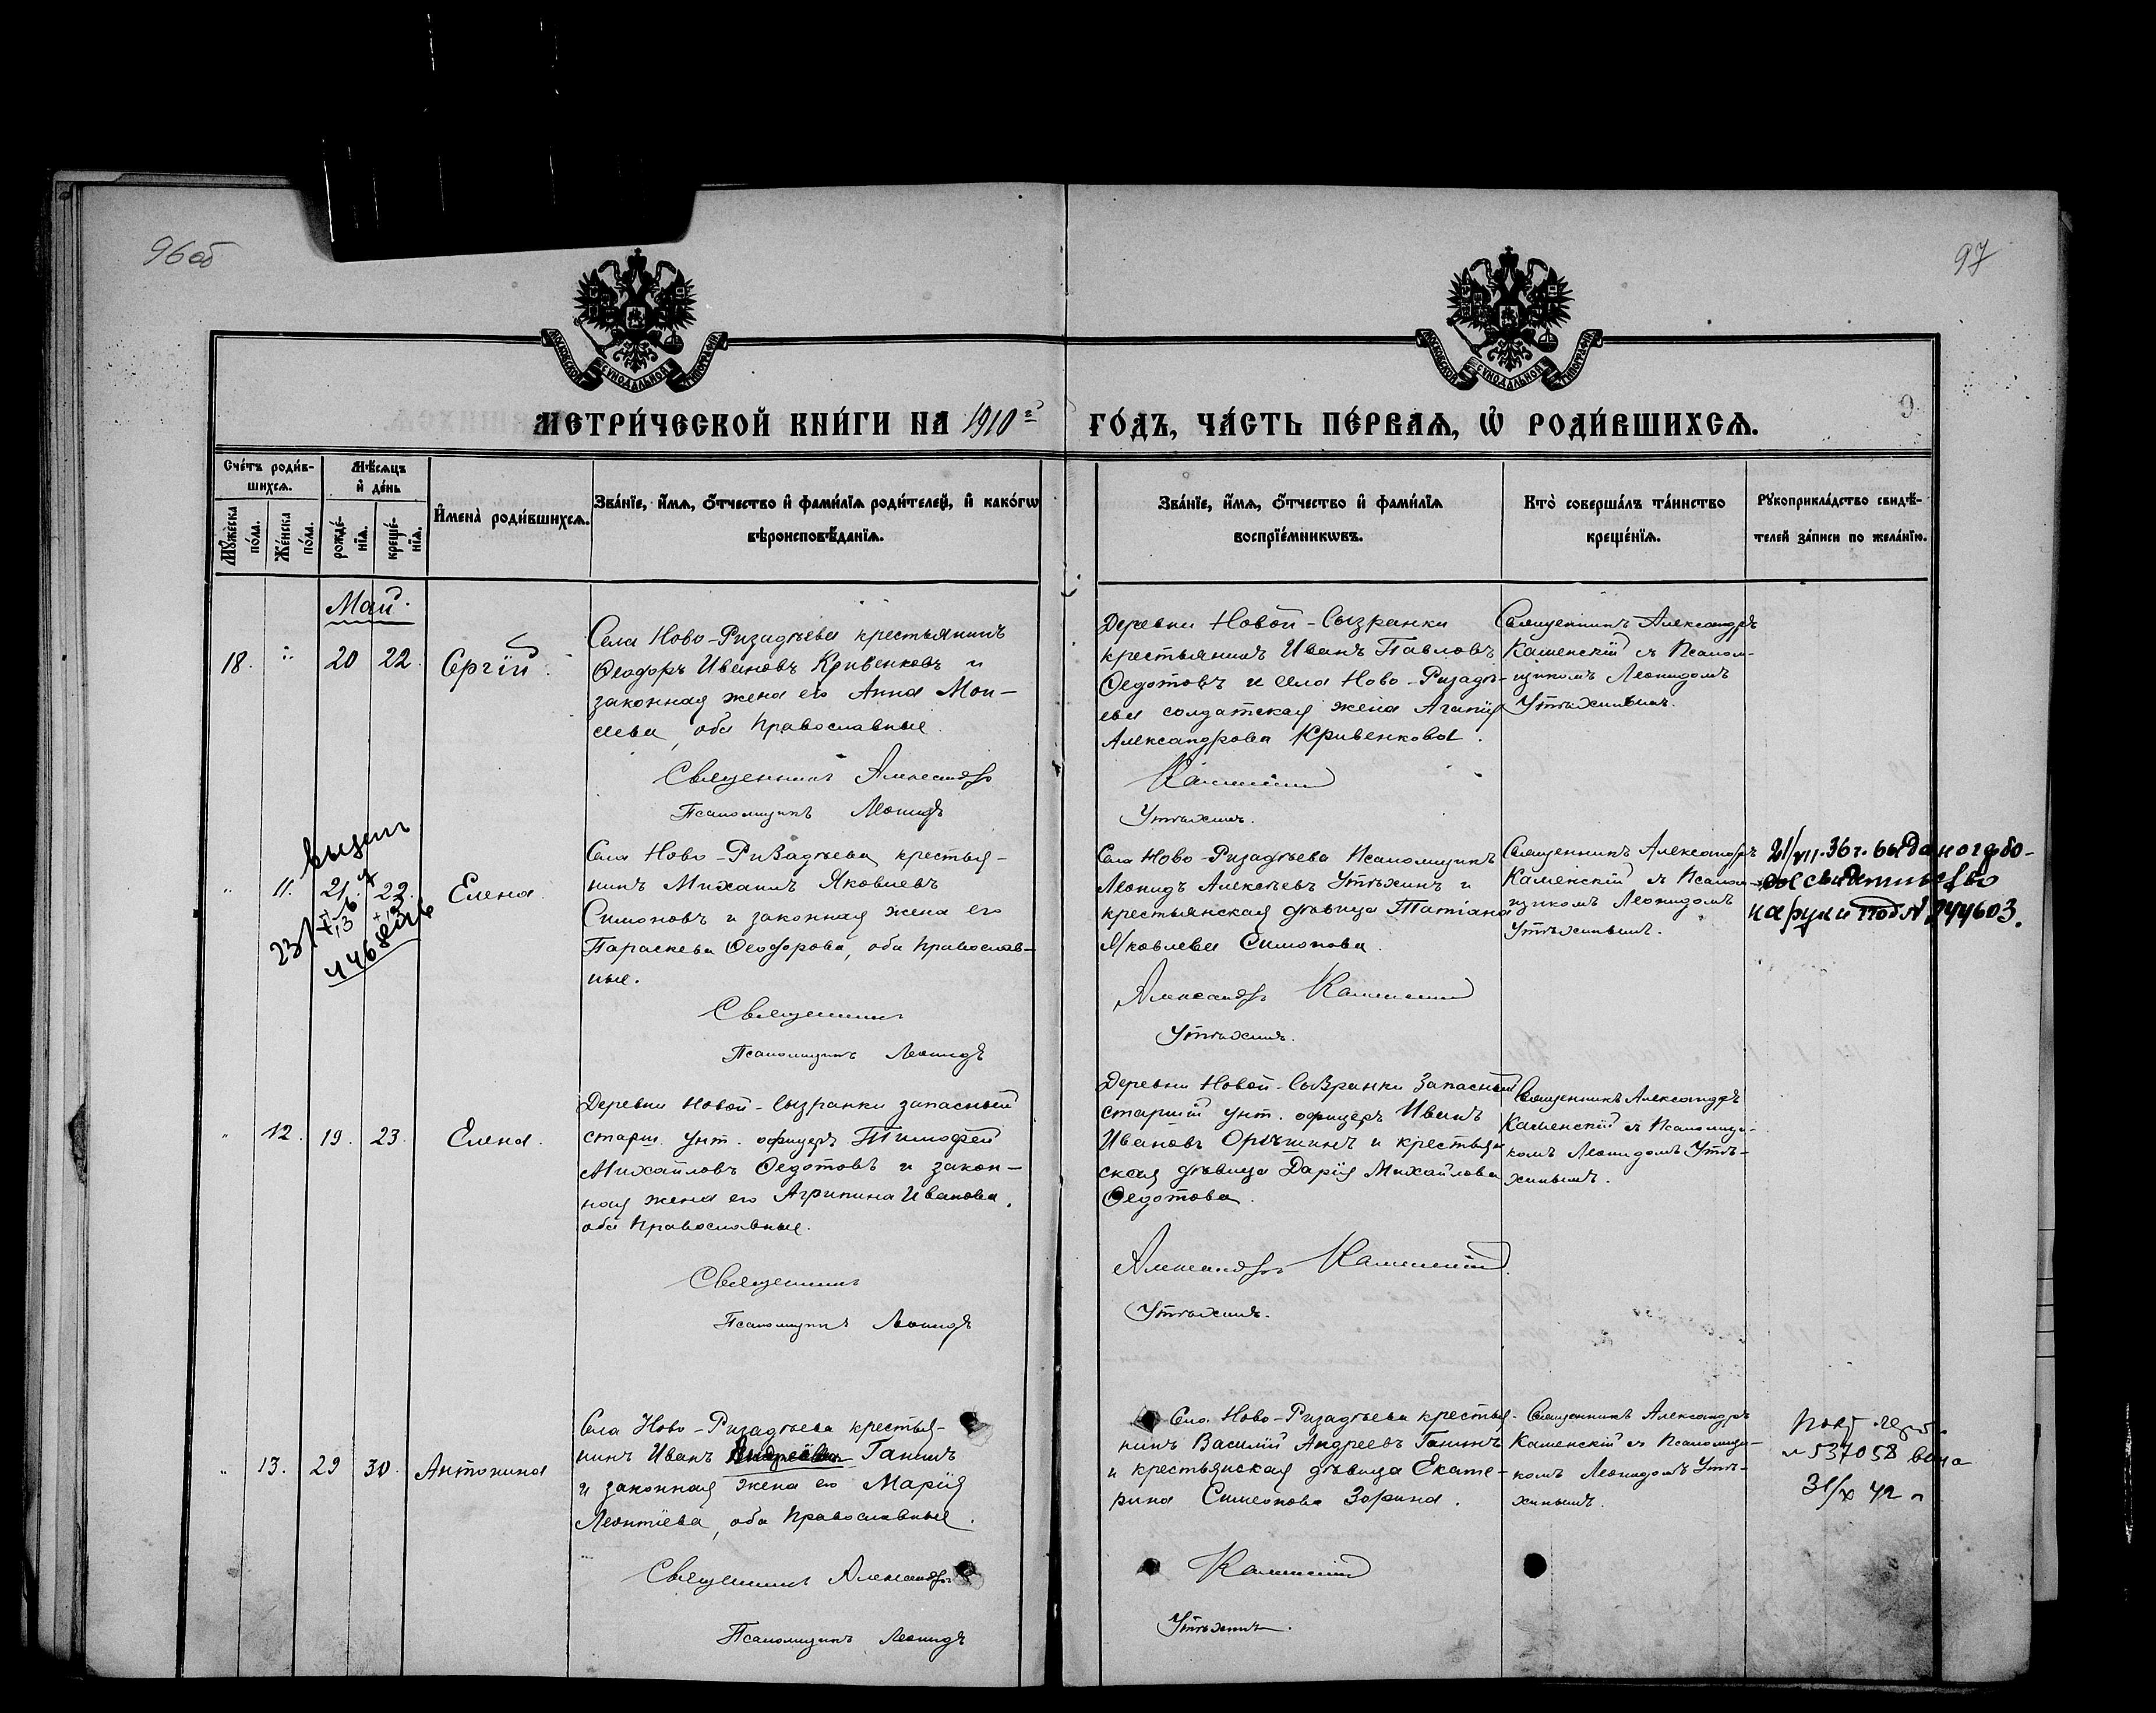 96 об
97
МОСКОВСКОЙ СѴНОДАЛЬНОЙ ТИПОГРАФІИ
МОСКОВСКОЙ СѴНОДАЛЬНОЙ ТИПОГРАФІИ
МЕТРИ́ЧЕСКОЙ КНИ́ГИ НА 1910 г ГО́ДЪ, ЧА́СТЬ ПЕ́РВАѦ, Ѡ҆ РОДИ́ВШИХСѦ.
9
Сче́тъ роди́в-
шихсѧ.
Мꙋ́жеска
по́ла.
Же́нска
по́ла.
Мѣ́сѧцъ
и҆ де́нь
рожде́-
нїѧ.
креще́-
нїѧ.
И҆мена̀ роди́вшихсѧ.
Зва́нїе, и҆́мѧ, ѻ҆́тчество и҆ фами́лїѧ роди́телей, и҆ како́гѡ
вѣроисповѣ́данїѧ.
Зва́нїе, и҆́мѧ, ѻ҆́тчество и҆ фами́лїѧ
воспрїе́мникѡвъ.
Кто̀ соверша́лъ та́инство
креще́нїѧ.
Рꙋкоприкла́дство свидѣ́-
телей за́писи по жела́нїю.
Май.
18. 20 22. Сергій.
Села Ново-Ризадѣева крестьянинъ
Ѳеодоръ Ивановъ Кривенковъ и
законная жена его Анна Мои-
сеева, оба православные.
Священникъ Александръ
Псаломщикъ Леонидъ
Деревни Новой-Сызранки
крестьянинъ Иванъ Павловъ
Ѳедотовъ и села Ново-Ризадѣ-
ева солдатская жена Агапія
Александрова Кривенкова.
Каменскій
Утѣхинъ.
Священникъ Александръ
Каменскій съ Псалом-
щикомъ Леонидомъ
Утѣхинымъ.
" 11. 21. 23. Елена
Села Ново-Ризадѣева крестья-
нинъ Михаилъ Яковлевъ
Симоновъ и законная жена его
Параскева Ѳеодорова, оба православ-
ные.
Священникъ
Псаломщикъ Леонидъ
Села Ново-Ризадѣева Псаломщикъ
Леонидъ Алексѣевъ Утѣхинъ и
крестьянская дѣвица Татіана
Яковлева Симонова.
Александръ Каменскій
Утѣхинъ.
Священникъ Александръ
Каменскій съ Псалом-
щикомъ Леонидомъ
Утѣхинымъ.
21/VII.36г. выдано гербо-
вое свидетельство
на руки под № 244603.
" 12. 19. 23. Елена.
Деревни Новой-Сызранки запасный
старш. унт. офицеръ Тимофей
Михайловъ Ѳедотовъ и закон-
ная жена его Агрипина Иванова,
оба православные.
Священникъ
Псаломщикъ Леонидъ
Деревни Новой-Сызранки Запасный
старшій унт. офицеръ Иванъ
Ивановъ Орѣшинъ и крестьян
ская дѣвица Дарія Михайлова
Ѳедотова.
Александръ Каменскій.
Утѣхинъ.
Священникъ Александръ
Каменскій съ Псаломщи-
комъ Леонидомъ Утѣ-
хинымъ.
" 13. 29 30. Антонина
Села Ново-Ризадѣева крестья-
нинъ Иванъ Андреевъ Ганинъ
и законная жена его Марія
Леонтіева, оба православные.
Священникъ Александръ
Псаломщикъ Леонидъ
Села Ново-Ризадѣева крестья-
нинъ Василій Андреевъ Ганинъ
и крестьянская дѣвица Екате-
рина Симеонова Зорина.
Каменскій
Утѣхинъ.
Священникъ Александръ
Каменскій съ Псаломщи-
комъ Леонидомъ Утѣ-
хинымъ.
№ 537058
31/X 42 г